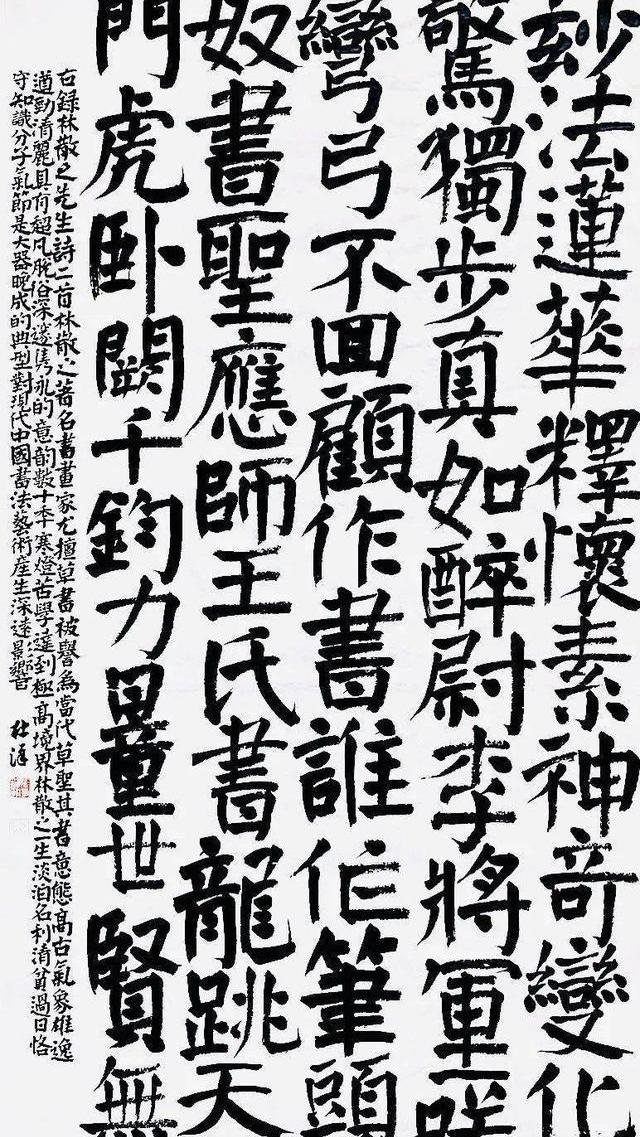 妙法蓮華釋懷素神奇變化
驚獨步真如醉尉李將軍
彎弓不回顧作書誰作筆頭
奴書聖應師王氏書龍跳天
門虎卧闕千鈞力量世賢無
右録林散之先生詩二首林散之著名書畫家尤擅草書被譽為當代草聖其書意態高古氣象雄逸
遒勁清麗具有超凡脫俗深邃雋永的意韵數十年寒燈苦學達到極高境界林散之一生淡泊名利清貧過日恪
守知識分子氣節是大器晚成的典型對現代中國書法藝術産生深遠影響